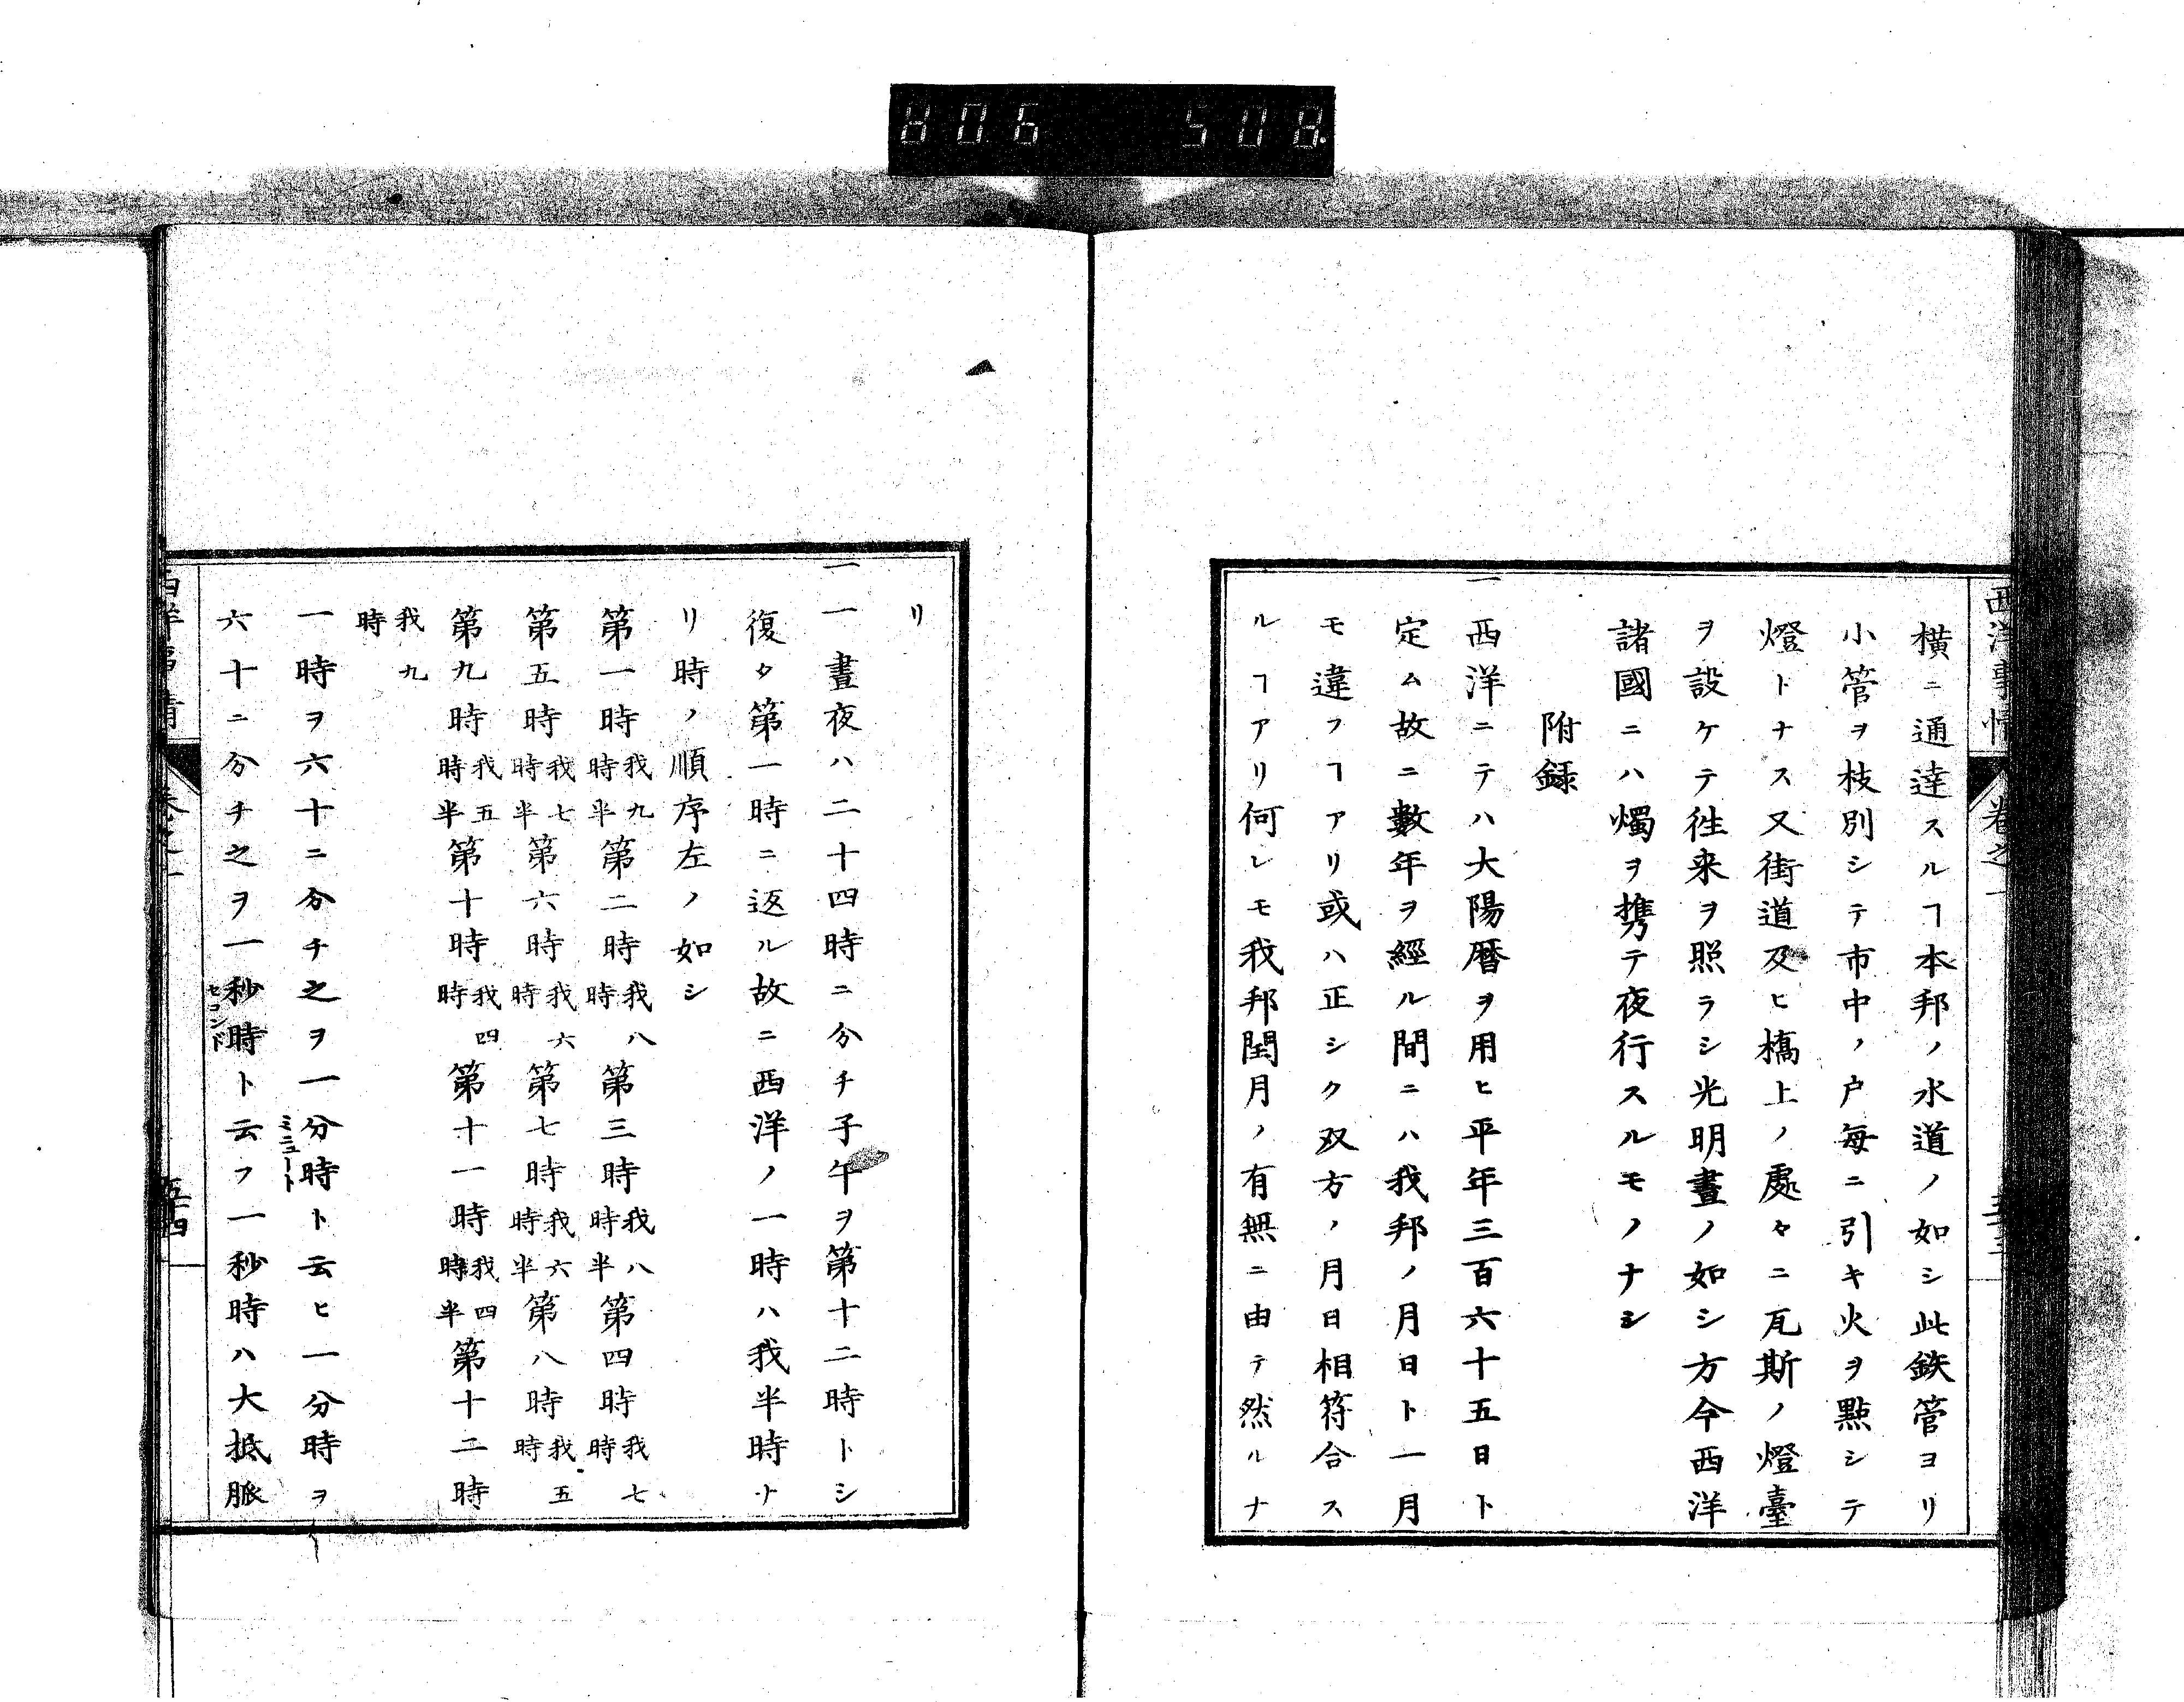 806 508
西洋事情 卷之一
横ニ通達スルヿ本邦ノ水道ノ如シ此鉄管ヨリ
小管ヲ枝別シテ市中ノ户毎ニ引キ火ヲ點シテ
燈トナス又街道及ヒ橋上ノ處々ニ瓦斯ノ燈臺
ヲ設ケテ徃来ヲ照ラシ光明晝ノ如シ方今西洋
諸國ニハ燭ヲ携テ夜行スルモノナシ
附録
一西洋ニテハ大陽暦ヲ用ヒ平年三百六十五日ト
定ム故ニ數年ヲ經ル間ニハ我邦ノ月日ト一月
モ違フヿアリ或ハ正シク双方ノ月日相符合ス
ルヿアリ何レモ我邦閏月ノ有無ニ由テ然ルナ
リ
一一晝夜ハ二十四時ニ分チ子午ヲ第十二時トシ
復タ第一時ニ返ル故ニ西洋ノ一時ハ我半時ナ
リ時ノ順序左ノ如シ
第一時我九時半第二時我八時第三時我八時半第四時我七時
第五時我七時半第六時我六時第七時我六時半第八時我五時
第九時我五時半第十時我四時第十一時我四時半第十二時
我九時
一時ヲ六十ニ分チ之ヲ一分時ミニュートト云ヒ一分時ヲ
六十ニ分チ之ヲ一秒時セコンドト云フ一秒時ハ大抵脈
西洋事情 卷之一 五十四